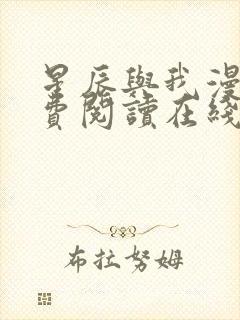 星辰與我漫
費閱讀在綫
布拉努姆